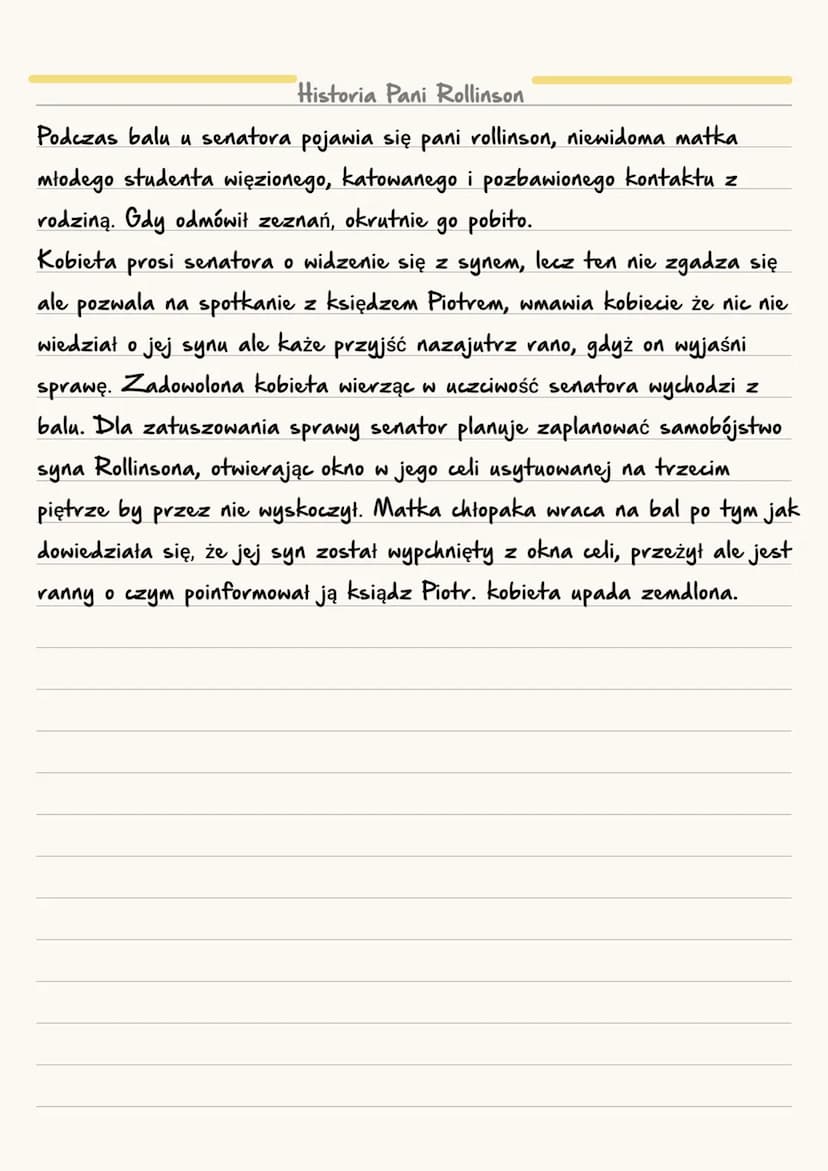 Historia Pani Rollinson
Podczas balu u senatora pojawia się pani rollinson, niewidoma matka
młodego studenta więzionego, katowanego i pozbawionego kontaktu z
rodziną. Gdy odmówił zeznań, okrutnie go pobito.
Kobieta prosi senatora o widzenie się z synem, lecz ten nie zgadza się
ale pozwala na spotkanie z księdzem Piotrem, wmawia kobiecie że nic nie
wiedział o jej synu ale każe przyjść nazajutrz rano, gdyż on wyjaśni
sprawę. Zadowolona kobieta wierząc w uczciwość senatora wychodzi z
balu. Dla zatuszowania sprawy senator planuje zaplanować samobójstwo
syna Rollinsona, otwierając okno w jego celi usytuowanej na trzecim
piętrze by przez nie wyskoczył. Matka chłopaka wraca na bal po tym jak
dowiedziała się, że jej syn został wypchnięty z okna celi, przeżył ale jest
ranny o czym poinformował ją ksiądz Piotr. kobieta upada zemdlona.